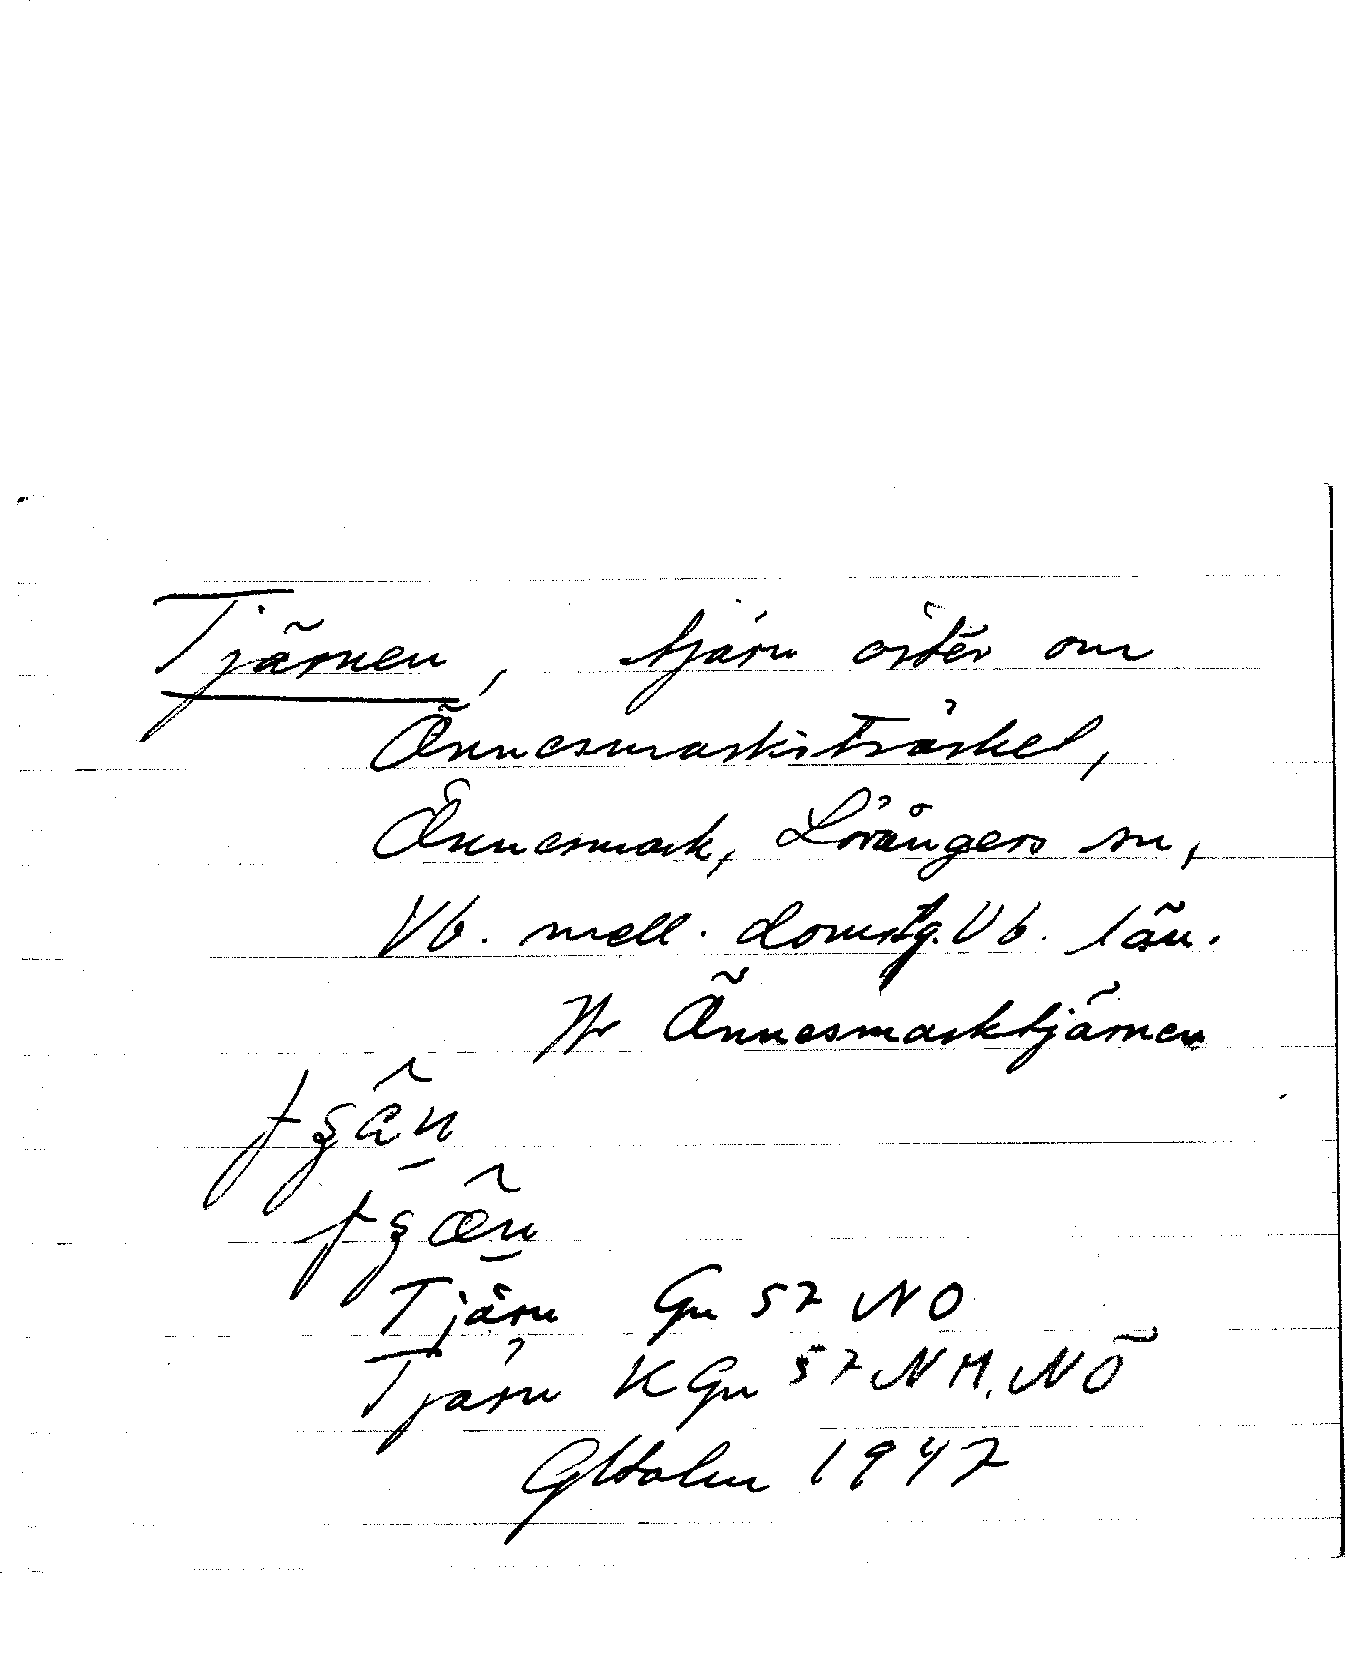 Tjärnen, tjärn öster om
Önnesmarksträsket,
Önnesmark, Lövångers sn,
Vb. mell. domstg. Vb. län.
Hr Önnesmarktjärnen
Tjärn Gu 57 NO
Tjärn K Gu 57 NM, NÖ
GHolm 1947